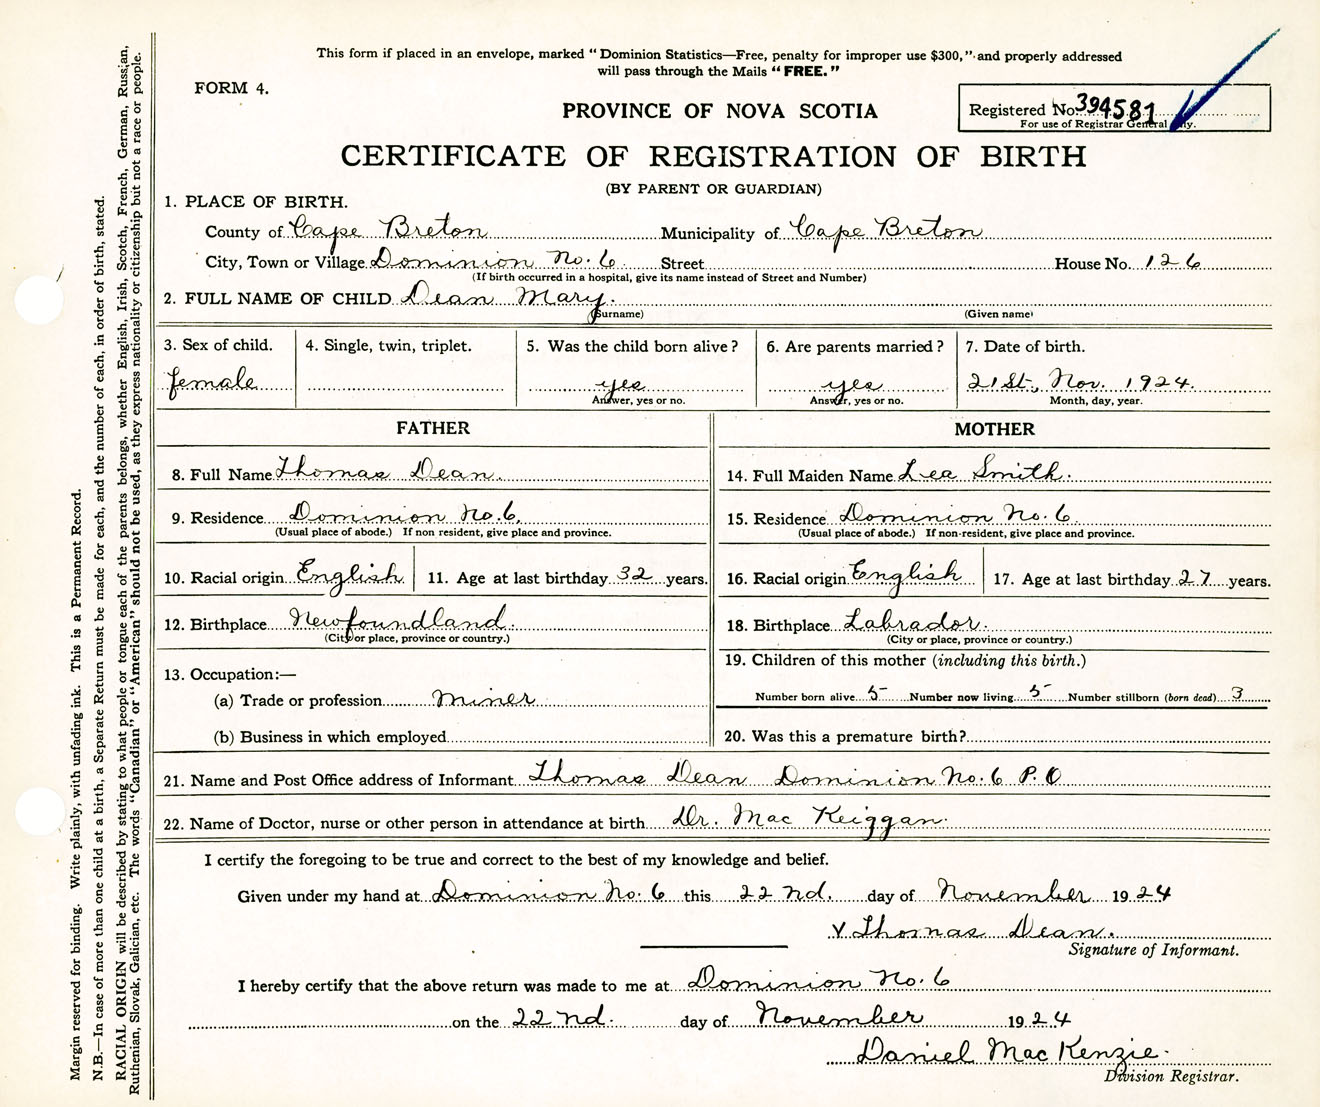 This form if placed in an envelope, marked "Dominion Statistics—Free, penalty for improper use $300," and properly addressed
will pass through the Mails "FREE."
FORM 4.
PROVINCE OF NOVA SCOTIA
Registered No. 394581
For use of Registrar General only.
CERTIFICATE OF REGISTRATION OF BIRTH
(BY PARENT OR GUARDIAN)
1. PLACE OF BIRTH.
County of Cape Breton Municipality of Cape Breton
City, Town or Village Dominion No. 6. Street House No. 126
(If birth occurred in a hospital, give its name instead of Street and Number)
2. FULL NAME OF CHILD Dean Mary.
(Surname) (Given name)
3. Sex of child. 4. Single, twin, triplet. 5. Was the child born alive? 6. Are parents married? 7. Date of birth.
female yes yes 21St, Nov. 1924.
Answer, yes or no. Answer, yes or no. Month, day, year.
FATHER MOTHER
8. Full Name Thomas Dean. 14. Full Maiden Name Lea Smith.
9. Residence Dominion No. 6. 15. Residence Dominion No. 6.
(Usual place of abode.) If non resident, give place and province. (Usual place of abode.) If non-resident, give place and province.
10. Racial origin English 11. Age at last birthday 32 years. 16. Racial origin English 17. Age at last birthday 27 years.
12. Birthplace Newfoundland. 18. Birthplace Labrador.
(City or place, province or country.) (City or place, province or country.)
19. Children of this mother (including this birth.)
13. Occupation:—
(a) Trade or profession miner Number born alive 5 Number now living 5 Number stillborn (born dead) 3
(b) Business in which employed 20. Was this a premature birth?
21. Name and Post Office address of Informant Thomas Dean Dominion No. 6 P.O
22. Name of Doctor, nurse or other person in attendance at birth Dr. Mac Keiggan.
I certify the foregoing to be true and correct to the best of my knowledge and belief.
Given under my hand at Dominion No. 6 this 22 nd. day of November 1924
v Thomas Dean.
Signature of Informant.
I hereby certify that the above return was made to me at Dominion No. 6
on the 22 nd. day of November 1924
Daniel Mac Kenzie.
Division Registrar.
Margin reserved for binding. Write plainly, with unfading ink. This is a Permanent Record.
N.B.—In case of more than one child at a birth, a Separate Return must be made for each, and the number of each, in order of birth, stated.
RACIAL ORIGIN will be described by stating to what people or tongue each of the parents belongs, whether English, Irish, Scotch, French, German, Russian,
Ruthenian, Slovak, Galician, etc. The words "Canadian" or "American" should not be used, as they express nationality or citizenship but not a race or people.